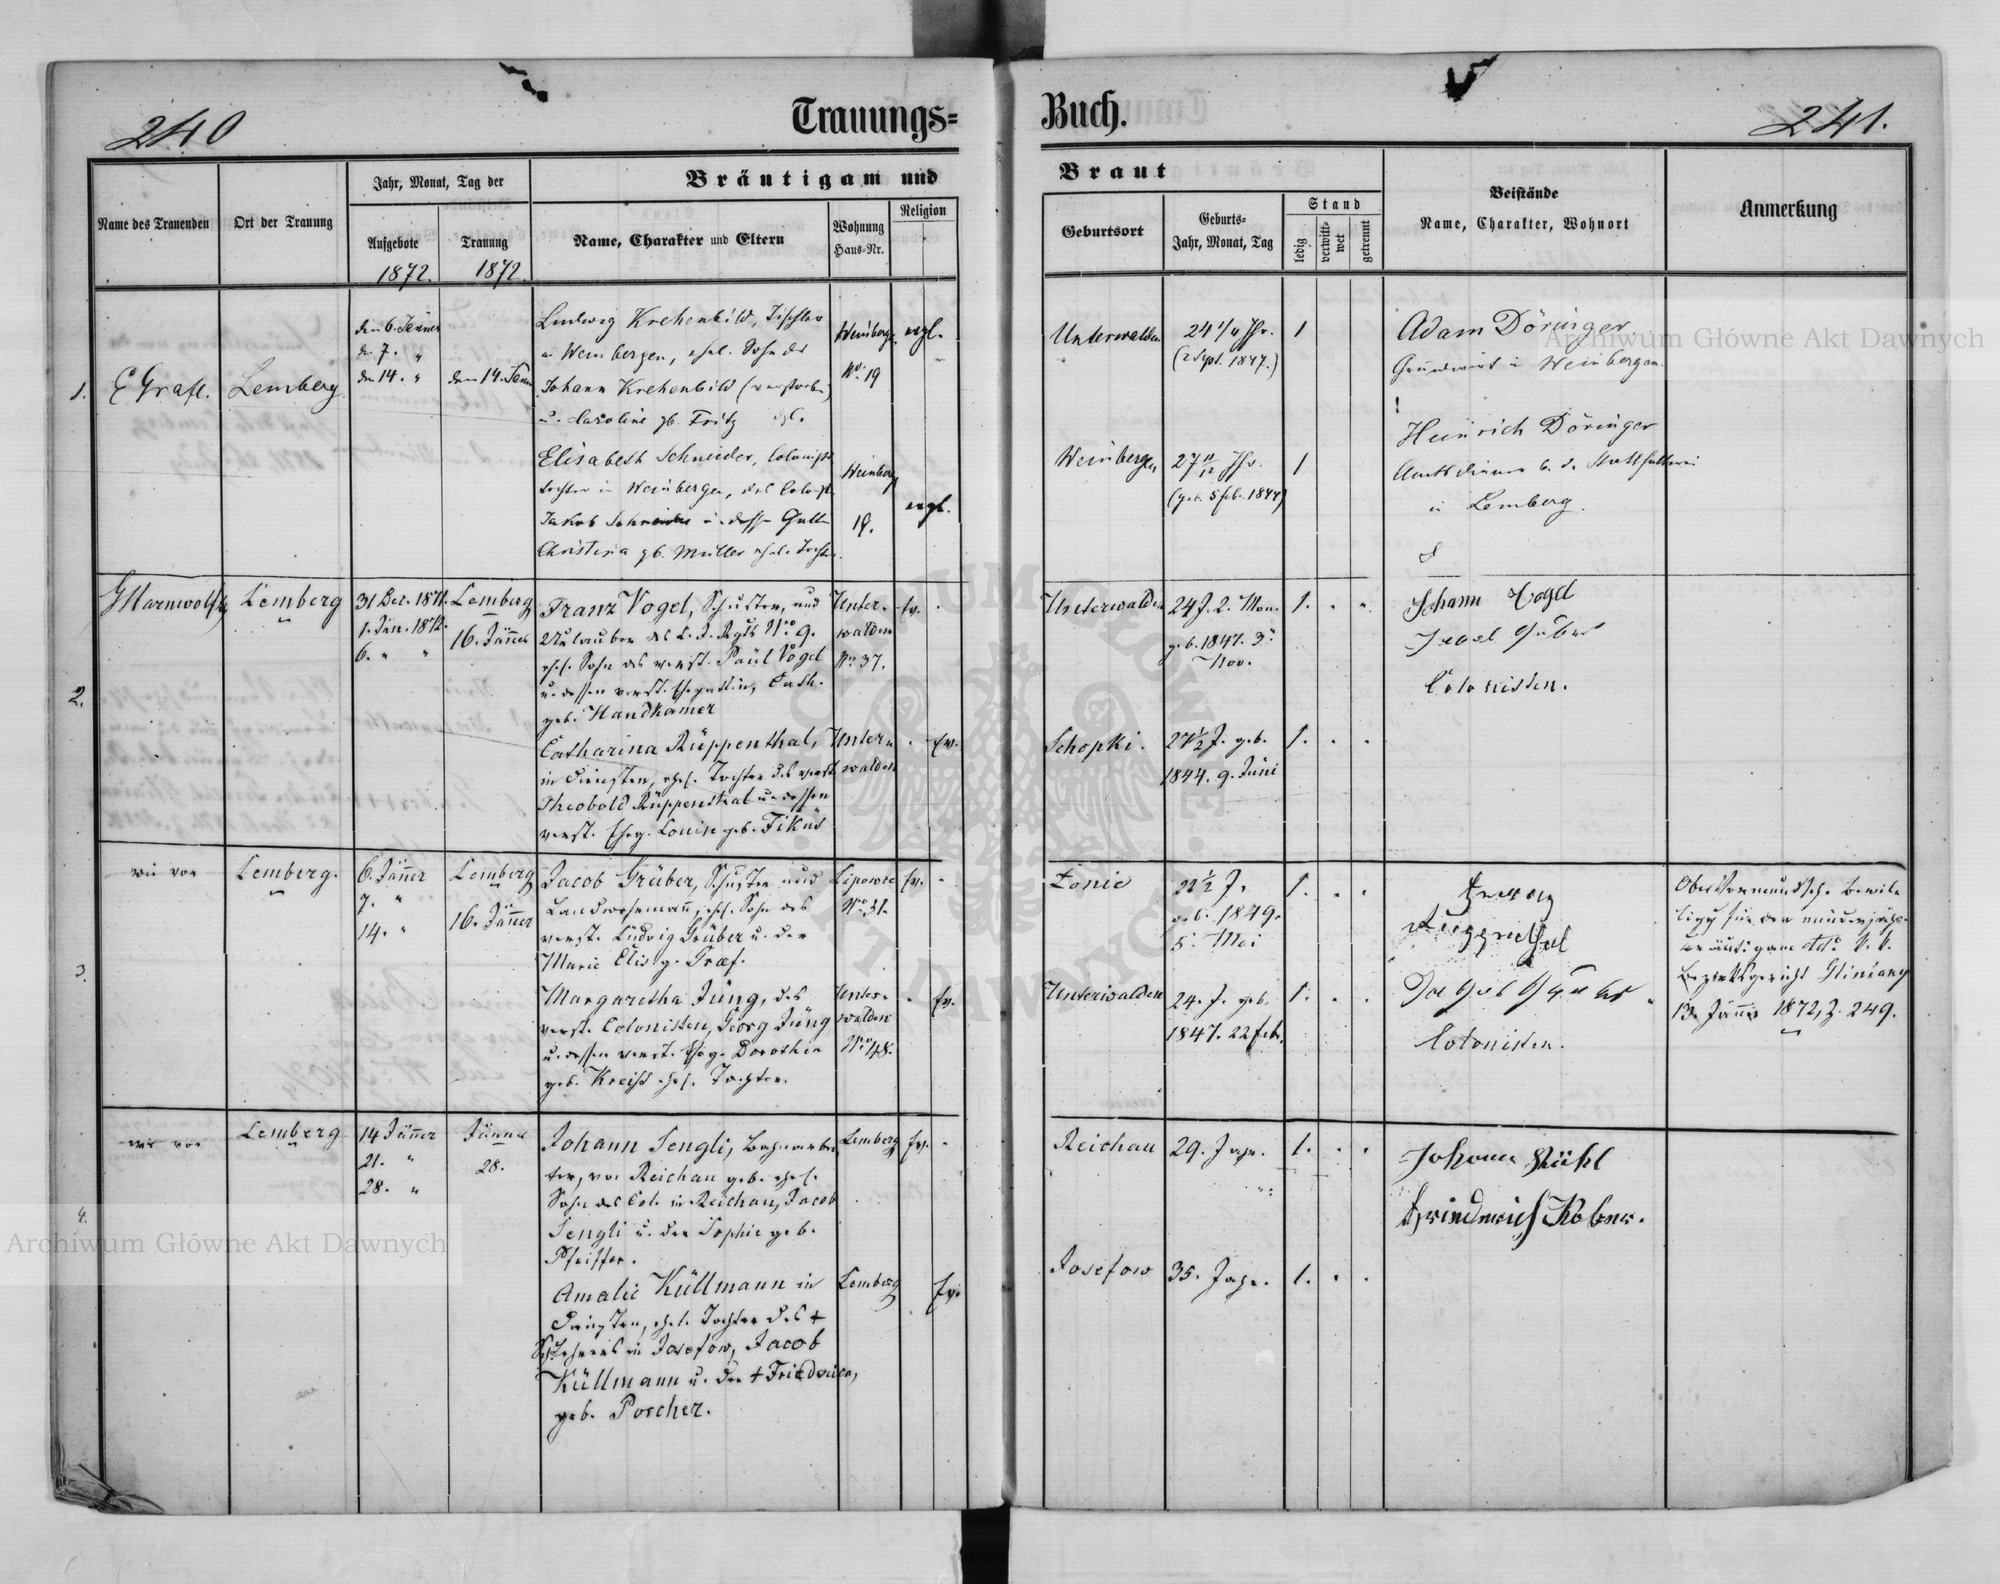 240
Trauungs=
Buch.
241.
Name des Trauenden
Ort der Trauung
Jahr, Monat, Tag der
Aufgebote
1872.
Trauung
1872.
Bräutigam und
Name, Charakter und Eltern
Wohnung
Haus-Nr.
Religion
Braut
Geburtsort
Geburts-
Jahr, Monat, Tag
Stand
ledig
verwitt-
wet
getrennt
Beistände
Name, Charakter, Wohnort
Anmerkung
1.
E Grafl.
Lemberg
den 6. Jänner
d. 7. "
den 14. "
den 14. Jänn
Ludwig Krehenbild, Tischler
in Weinbergen, ehel. Sohn des
Johann Krehenbild (verstorben)
u. Caroline gb. Fritz
Weinberge
No. 19
evgl.
Unterwalden
24 1/4 Jhr.
(2 Sept. 1847.)
1
Adam Döringer
Grundwirt in Weinbergen
Elisabeth Schneider, Colonists
tochter in Weinbergen, des Colonist
Jakob Schneider u. dessen Gattin
Christina gb. Müller ehel. Tochter
Weinberg
19.
evgl.
Weinbergen
27 11/12 Jhr.
(geb. 5 feb. 1844)
1
Heinrich Döringer
Amtsdiener b. d. Statthalterei
in Lemberg.
2.
Lemberg
31 Dez. 1871.
1. Jän. 1872.
6. " "
Lemberg
16. Jänner
Franz Vogel, Schuster, und
Urlauber des L. J. Rgts No. 9.
ehel. Sohn des verst. Paul Vogel
u. dessen verst. Ehegattin, Cath.
geb. Handkamer
Unter-
walden
No. 37.
Ev.
Unterwalden
24 J. 2. Mon.
geb. 1847. 3.
Nov.
1.
Johann Vogel
Colonisten.
Catharina Rüppenthal,
in Diensten, ehel. Tochter des verst.
Theobold Rüppenthal u. dessen
verst. Eheg. Louise geb. Fikus
Unter
walden
Ev.
Schopki.
27 1/2 J. geb.
1844. 9. Juni
1.
3.
wie vor
Lemberg.
6. Jänner
7. "
14. "
Lemberg
16. Jänner
Jacob Grüber, Schuster und
Landwehrmann, ehel. Sohn des
verst. Lüdwig Grüber u. der
Marie Elis. g. Graf.
Lipowce
No. 31.
Ev.
Zenie
22 1/2 J.
geb. 1849.
5. Mai
1.
Obervormundsch. Bewil-
ligg für den minderjähr.
Bräutigam ddo. k. k.
Bezirksgericht Gliniany
13. Jänner 1872, Z. 249.
Margaretha Jüng, des
verst. Colonisten, Georg Jüng
u. dessen verst. Eheg. Dorothea
geb. Kreiss ehel. Tochter.
Unter-
walden
No. 48.
Ev.
Unterwalden
24. J. geb.
1847. 22 Feb.
1.
Colonisten.
4.
wie vor
Lemberg
14 Jänner
21. "
28. "
Jänner
28.
Johann Sengli, Bahnarbei-
ter, von Reichau geb. ehel.
Sohn des Col. in Reichau, Jacob
Sengli u. der Sophie geb.
Pfeiffer.
Lemberg
Ev.
Reichau
29. Jahr.
1.
Johann Rühl
Friedrich Kober.
Amalie Küllmann in
Diensten, ehel. Tochter des +
Schullehrers in Josefow, Jacob
Küllmann u. der + Friedrica,
geb. Porcher.
Lemberg
Ev.
Josefow
35. Jahr.
1.
Archiwum Główne Akt Dawnych
Archiwum Główne Akt Dawnych